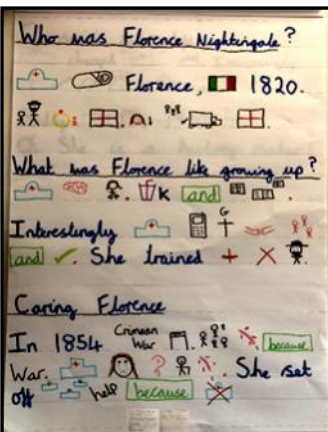 Who was Florence Nightingale?
Florence, 1820.
What was Florence like growing up?
K and
Interestingly G
and She trained + x
Caring Florence
In 1854 Crimean War because
War. ? She set
off help because